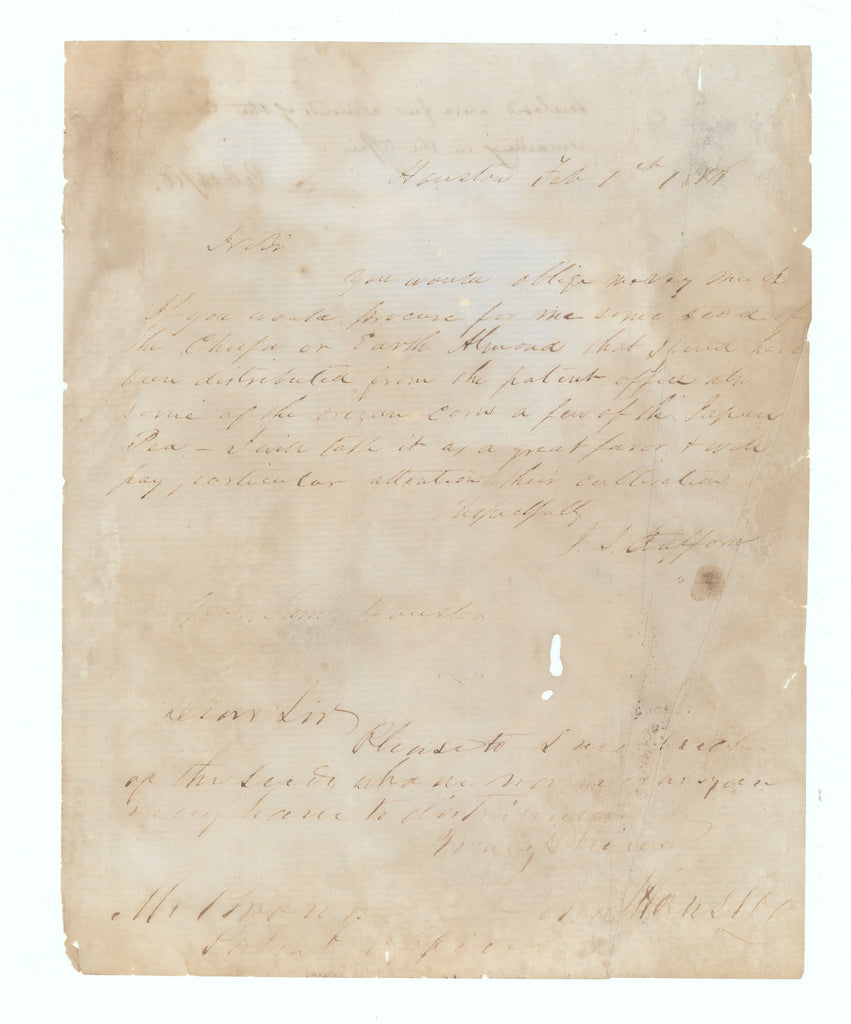 Houston Feb 1st
Dr Sir
You would oblige me very much
If you would procure for me some seed of
the Chufa or Earth Almond that I find has
been distributed from the patent office also
some of the oregon corn a few of the Japan
Pea – I will take it as a great favor & will
pay particular attention their cultivation
Respectfully
J. S. Stafford
Gen. Sam. Houston
Dear Sir
Please to send me such
of the seeds above named as you
may have to distribute
Truly
Sam Houston
Mr
Patent Office